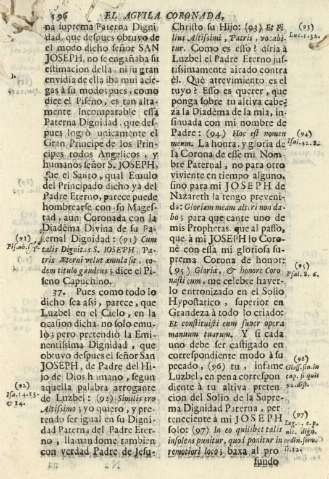 196 EL AGVILA CORONADA,
na suprema Paterna Digni
dad, que despues obtuvo de
el modo dicho señor SAN
JOSEPH, no se engañaba su
estimacion della, ni su gran
envidia de ella iba mui acie-
gas à su modo; pues, como
dice el Piseño, es tan alta-
mente incomparable essa
Paterna Dignidad, que des-
pues logrò unicamente el
Gran Principe de los Prin-
cipes todos Angelicos, y
humanos señor S. JOSEPH,
que el Santo, qual Emulo
del Principado dicho ya del
Padre Eterno, parece puede
hombrearse con su Magest-
tad, aun Coronada con la
Diadèma Divina de su Pa-
ternal Dignidad: (91) Cum
talis Dignitas S. JOSEPH, Pa-
tris Æterni velut emula sit, eo-
dem titulo gaudens; dice el Pi-
seno Capuchino.
37. Pues como todo lo
dicho sea assi, parece, que
Luzbel en el Cielo, en la
ocasion dicha, no solo emu-
lò; pero pretendiò la Emi-
nentissima Dignidad, que
obtuvo despues el señor San
JOSEPH, de Padre del Hi-
jo de Dios humano, segun
aquella palabra arrogante
de Luzbel: (92) Similis ero
Altissimo; yo quiero, y pre-
tendo ser igual en su Digni-
dad Paterna del Padre Eter-
no, llamandome tambien
con verdad Padre de Jesu-
(91)
(92)
Isa. 14. 13.
& 14.
Christo su Hijo: (93) Et Fi
lius Altissimi, Patris, vocabi-
tur. Como es esso? diria à
Luzbel el Padre Eterno jus-
tissimamente airado contra
èl. Què atrevimiento es el
tuyo? Esso es querer, que
ponga sobre tu altiva cabe-
za la Diadèma de la mia, in-
sinuada con mi nombre de
Padre: (94) Hoc est nomen
meum. La honra, y gloria de
la Corona de esse mi Nom-
bre Paternal, no para otro
viviente en tiempo alguno,
sino para mi JOSEPH de
Nazareth la tengo preveni-
da: Gloriam meam alteri non da-
bo; para que cante uno de
mis Prophetas, que al passo,
que à mi JOSEPH lo Coro-
nè con essa mi gloriosa su-
prema Corona de honor:
(95) Gloria, & honore Coro
nasti eum, me celebre haver-
lo entronizado en el Solio
Hypostatico, superior en
Grandeza à todo lo criado:
Et constituisti eum super opera
manuum tuarum. Y si cada
uno debe ser castigado en
correspondiente modo à su
pecado, (96) tu, infame
Luzbel, en pena correspon
diente à tu altiva preten-
cion del Solio de la Supre-
ma Dignidad Paterna, per-
teneciente à mi JOSEPH
solo: (97) In eo quilibet talis
insolens punitur, quod ponitur in
remotiori loco; baxa al pro
fundo
(93)
Luc. 1. 32.
(94)
Isa. 42. 8.
(95)
Psal. 8. 6.
(96)
(97)